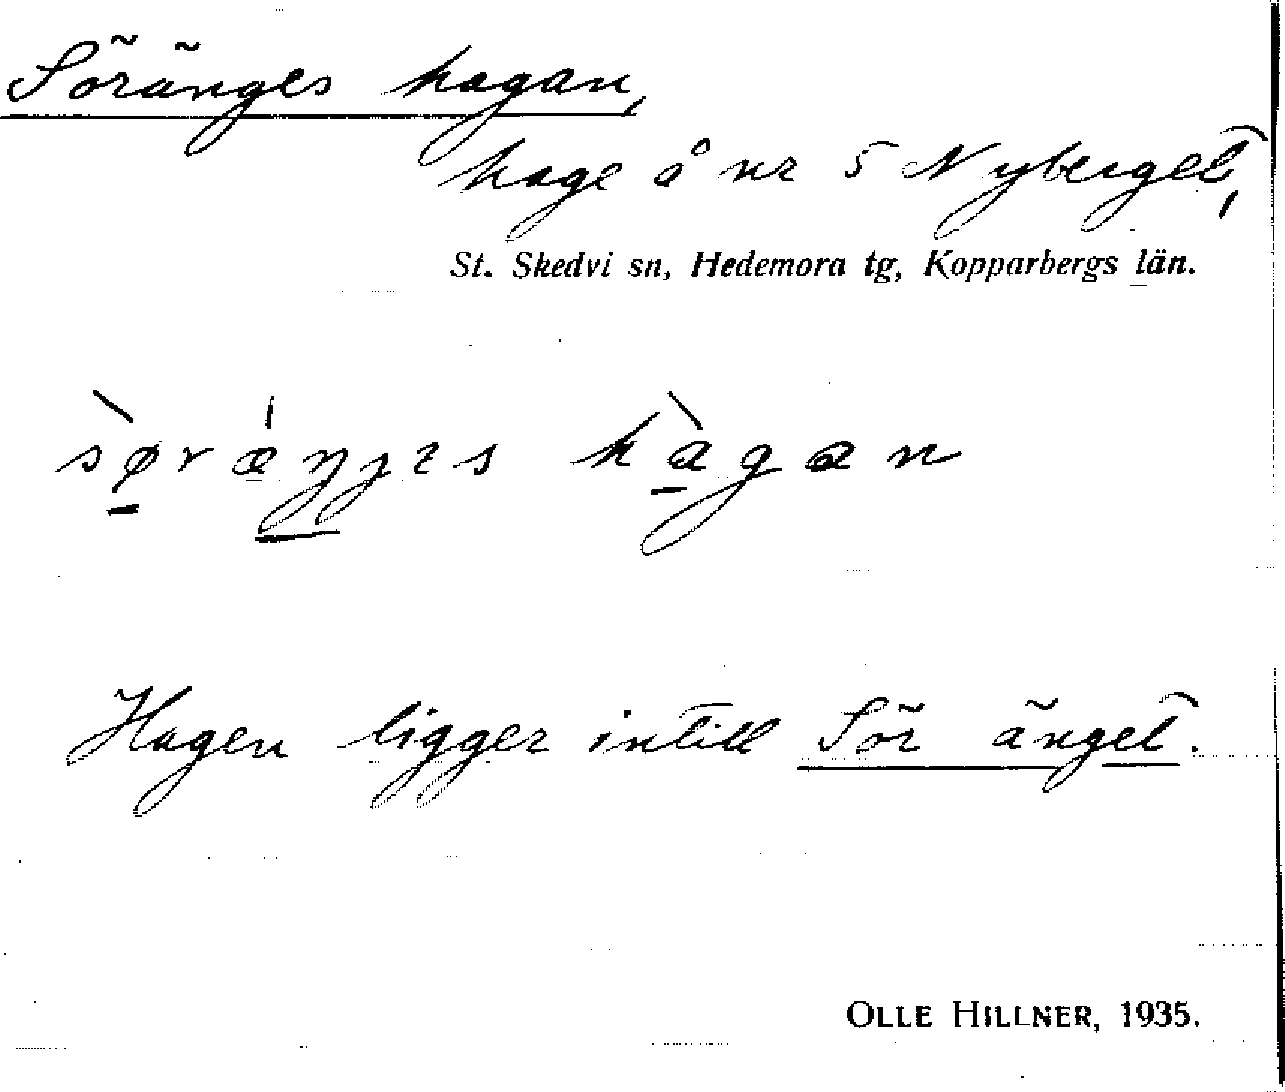 Söränges hagan,
hage å nr 5 Nyberget,
St. Skedvi sn, Hedemora tg, Kopparbergs län.
sø̀rǽŋjɩs hàgan
Hagen ligger intill Sör änget.
OLLE HILLNER, 1935.